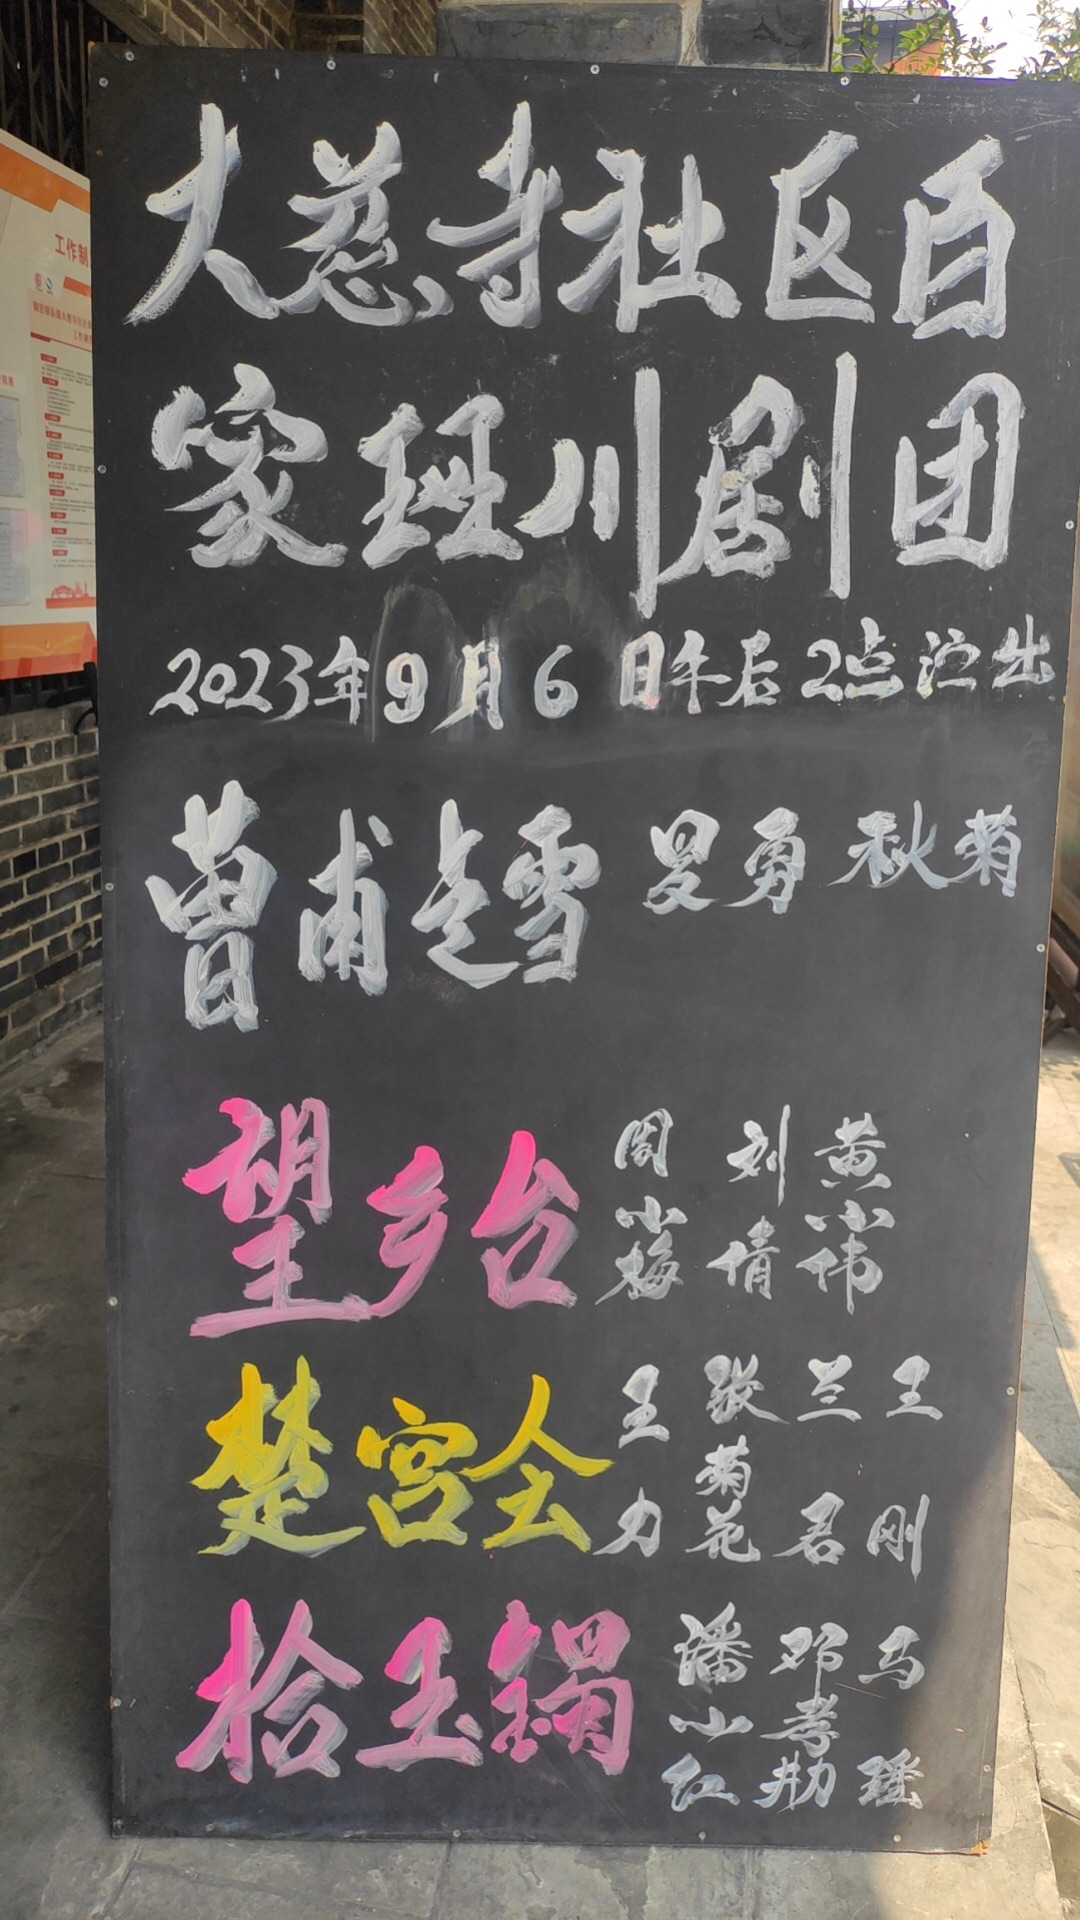 工作制
大慈寺社区百
家班川剧团
2023年9月6日午后2点演出
曹甫走雪 旻勇 秋菊
望乡台 周小梅 刘倩 黄小伟
楚宫会 王力 张菊花 兰君 王刚
拾玉镯 潘小红 邓孝勋 马瑶